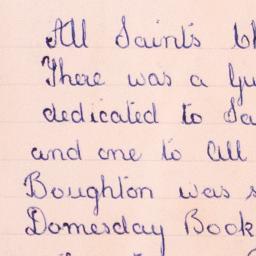 All Saints Ch
There was a Gu
dedicated to Sa
and one to All
Boughton was s
Domesday Book